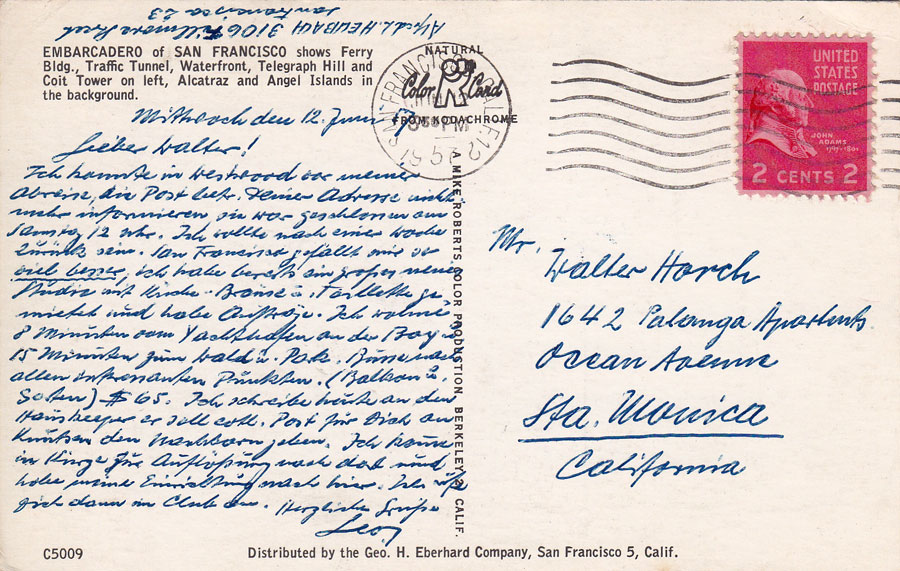 Alfred L. HEUBACH 3106 Fillmore Street
San Francisco 23
EMBARCADERO of SAN FRANCISCO shows Ferry
Bldg., Traffic Tunnel, Waterfront, Telegraph Hill and
Coit Tower on left, Alcatraz and Angel Islands in
the background.
NATURAL
Color Card
FROM KODACHROME
SAN FRANCISCO CALIF. 12
PM
1957
UNITED
STATES
POSTAGE
JOHN
ADAMS
1797-1801
2 CENTS 2
Mittwoch den 12. Juni 57
Lieber Walter!
Ich konnte in Westwood vor meiner
Abreise, die Post betr. Deiner Adresse nicht
mehr informieren sie war geschlossen am
Samstag 12 Uhr. Ich wollte nach einer Woche
zurück sein. San Francisco gefällt mir so
viel besser, ich habe bereits ein großes neues
Studio mit Küche - Brause u. Toillette ge-
mietet und habe Aufträge. Ich wohne
8 Minuten vom Yachthafen an der Bay u.
15 Minuten zum Wald u. Park. Busse nach
allen interessanten Punkten. (Balkon u.
Garten) $65. Ich schreibe heute an den
Hauskeeper er soll evtl. Post für Dich an
den Nachbarn geben. Ich komme
in Kürze zur Auflößung nach dort und
hole meine Einrichtung nach hier. Ich rufe
Dich dann im Club an. Herzliche Grüße
A MIKE ROBERTS COLOR PRODUCTION BERKELEY 2, CALIF.
Mr.
Walter Horch
1642 Palanga Apartents.
Ocean Avenue
Sta. Monica
California
C5009
Distributed by the Geo. H. Eberhard Company, San Francisco 5, Calif.